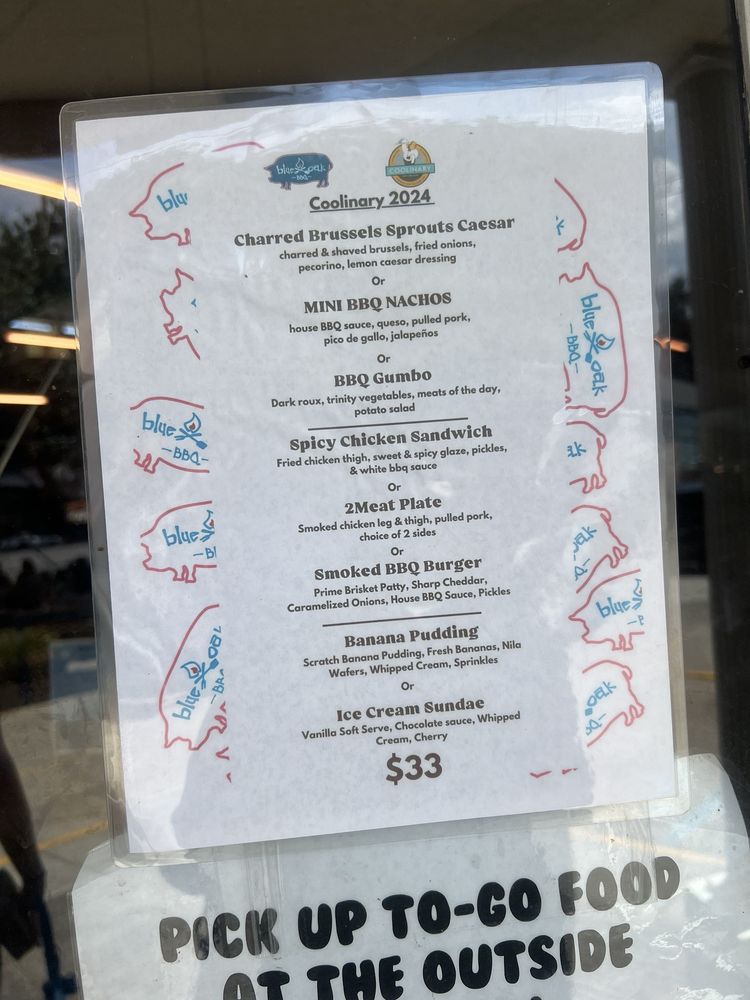 blue oak
-BBQ-
COOLINARY
Coolinary 2024
Charred Brussels Sprouts Caesar
charred & shaved brussels, fried onions,
pecorino, lemon caesar dressing
Or
MINI BBQ NACHOS
house BBQ sauce, queso, pulled pork,
pico de gallo, jalapeños
Or
BBQ Gumbo
Dark roux, trinity vegetables, meats of the day,
potato salad
Spicy Chicken Sandwich
Fried chicken thigh, sweet & spicy glaze, pickles,
& white bbq sauce
Or
2Meat Plate
Smoked chicken leg & thigh, pulled pork,
choice of 2 sides
Or
Smoked BBQ Burger
Prime Brisket Patty, Sharp Cheddar,
Caramelized Onions, House BBQ Sauce, Pickles
Banana Pudding
Scratch Banana Pudding, Fresh Bananas, Nila
Wafers, Whipped Cream, Sprinkles
Or
Ice Cream Sundae
Vanilla Soft Serve, Chocolate sauce, Whipped
Cream, Cherry
$33
blu
blue
-BBQ-
blue
blue oak
blue oak
-BBQ-
blue
oak
PICK UP TO-GO FOOD
AT THE OUTSIDE